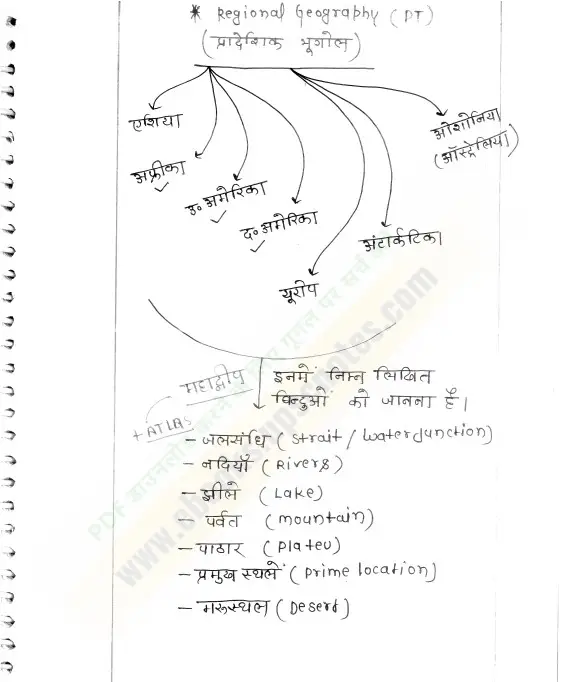 * Regional Geography (PT)
(प्रादेशिक भूगोल)
एशिया
अफ्रीका
उ० अमेरिका
द० अमेरिका
यूरोप
अंटार्कटिका
ओशोनिया
(ऑस्ट्रेलिया)
महाद्वीप
+ ATLAS
इनमें निम्न लिखित
बिन्दुओं को जानना है।
- जलसंधि (Strait / waterjunction)
- नदियाँ (Rivers)
- झीले (Lake)
- पर्वत (mountain)
- पाठार (plateu)
- प्रमुख स्थलें (prime location)
- मरूस्थल (Desert)